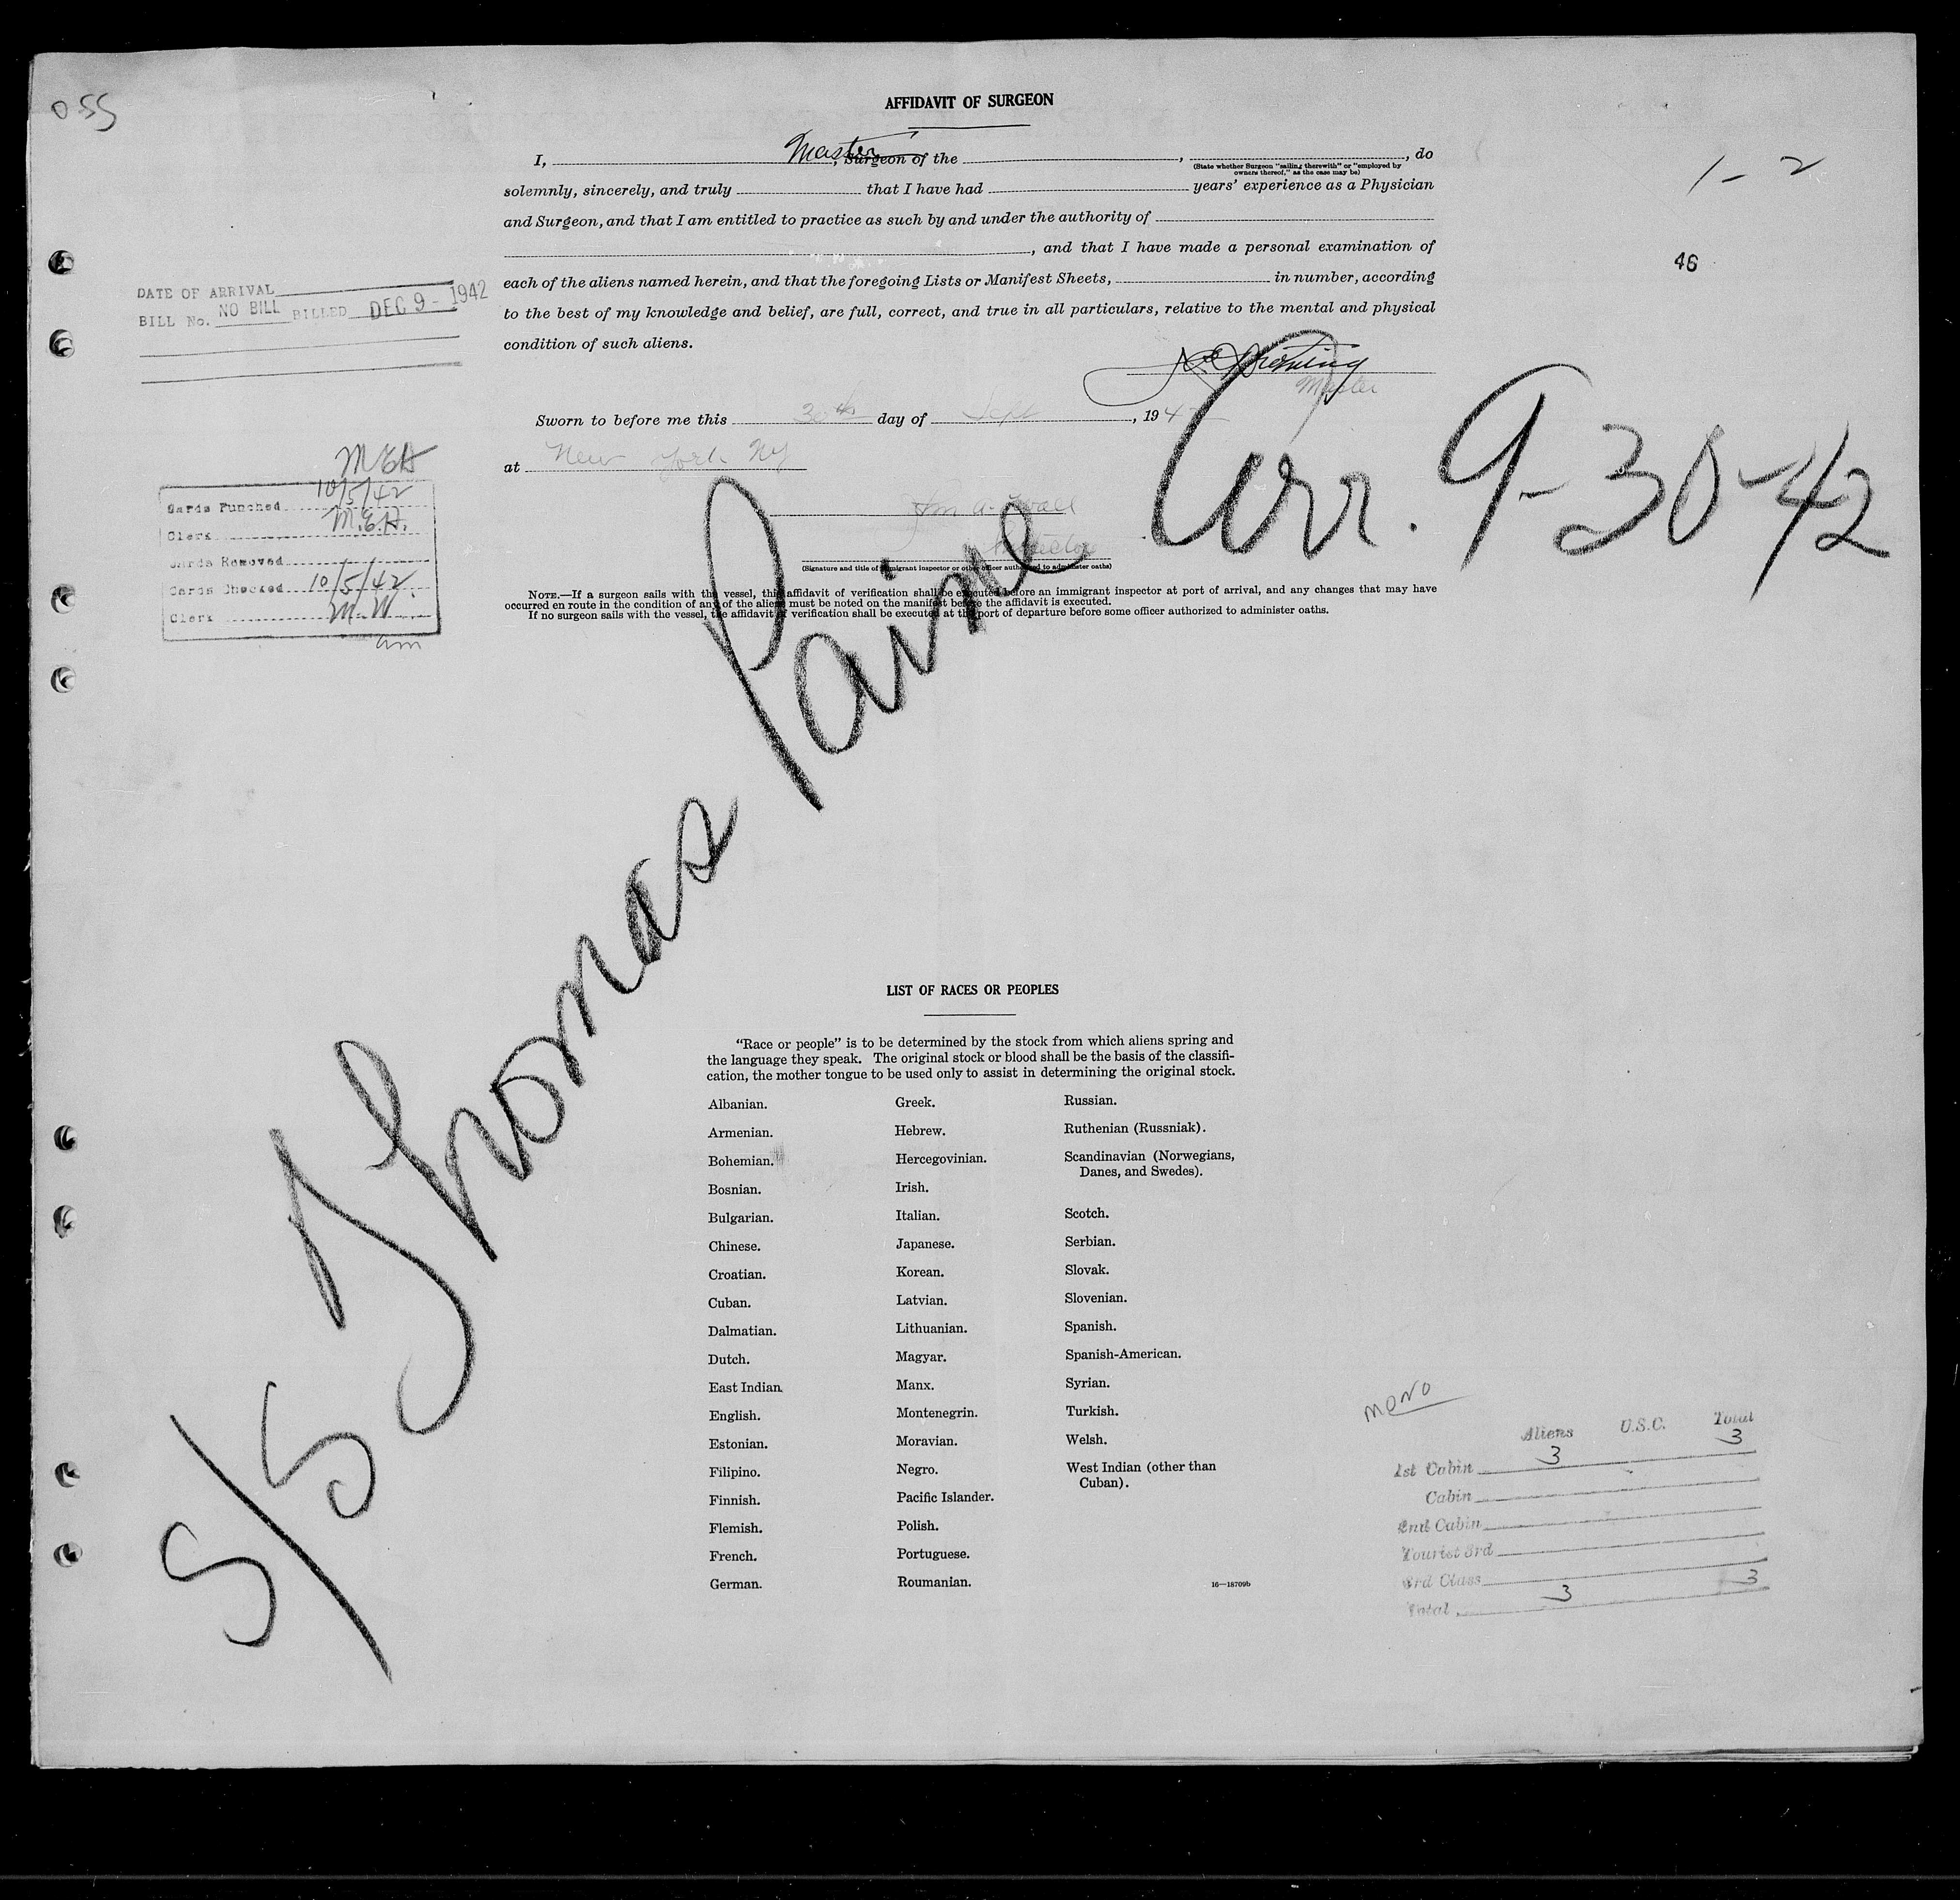 055
AFFIDAVIT OF SURGEON
I, Master, Surgeon of the , , do
(State whether Surgeon "sailing therewith" or "employed by
owners thereof," as the case may be)
solemnly, sincerely, and truly that I have had years' experience as a Physician
and Surgeon, and that I am entitled to practice as such by and under the authority of
, and that I have made a personal examination of
each of the aliens named herein, and that the foregoing Lists or Manifest Sheets, in number, according
to the best of my knowledge and belief, are full, correct, and true in all particulars, relative to the mental and physical
condition of such aliens.
1-2
46
DATE OF ARRIVAL
BILL No. NO BILL BILLED DEC 9 - 1942
Master
Sworn to before me this 30th day of Sept, 1942
at New York NY
Arr. 9-30-42
Inspector
(Signature and title of immigrant inspector or other officer authorized to administer oaths)
MEH
Cards Punched 10/5/42
Clerk M.E.H.
Cards Removed
Cards Checked 10/5/42
Clerk M.W.
am
NOTE.—If a surgeon sails with the vessel, this affidavit of verification shall be executed before an immigrant inspector at port of arrival, and any changes that may have
occurred en route in the condition of any of the aliens must be noted on the manifest before the affidavit is executed.
If no surgeon sails with the vessel, the affidavit of verification shall be executed at the port of departure before some officer authorized to administer oaths.
S/S Thomas Paine
LIST OF RACES OR PEOPLES
"Race or people" is to be determined by the stock from which aliens spring and
the language they speak. The original stock or blood shall be the basis of the classifi-
cation, the mother tongue to be used only to assist in determining the original stock.
Albanian.
Armenian.
Bohemian.
Bosnian.
Bulgarian.
Chinese.
Croatian.
Cuban.
Dalmatian.
Dutch.
East Indian.
English.
Estonian.
Filipino.
Finnish.
Flemish.
French.
German.
Greek.
Hebrew.
Hercegovinian.
Irish.
Italian.
Japanese.
Korean.
Latvian.
Lithuanian.
Magyar.
Manx.
Montenegrin.
Moravian.
Negro.
Pacific Islander.
Polish.
Portuguese.
Roumanian.
Russian.
Ruthenian (Russniak).
Scandinavian (Norwegians,
Danes, and Swedes).
Scotch.
Serbian.
Slovak.
Slovenian.
Spanish.
Spanish-American.
Syrian.
Turkish.
Welsh.
West Indian (other than
Cuban).
16—18709b
Aliens U.S.C. Total
1st Cabin 3 3
Cabin
2nd Cabin
Tourist 3rd
3rd Class
Total 3 3